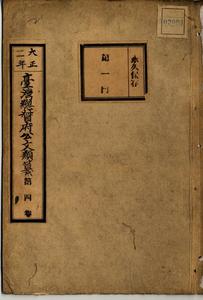 永久保存
第一門
大正
二年
臺灣總督府公文類纂
第四卷